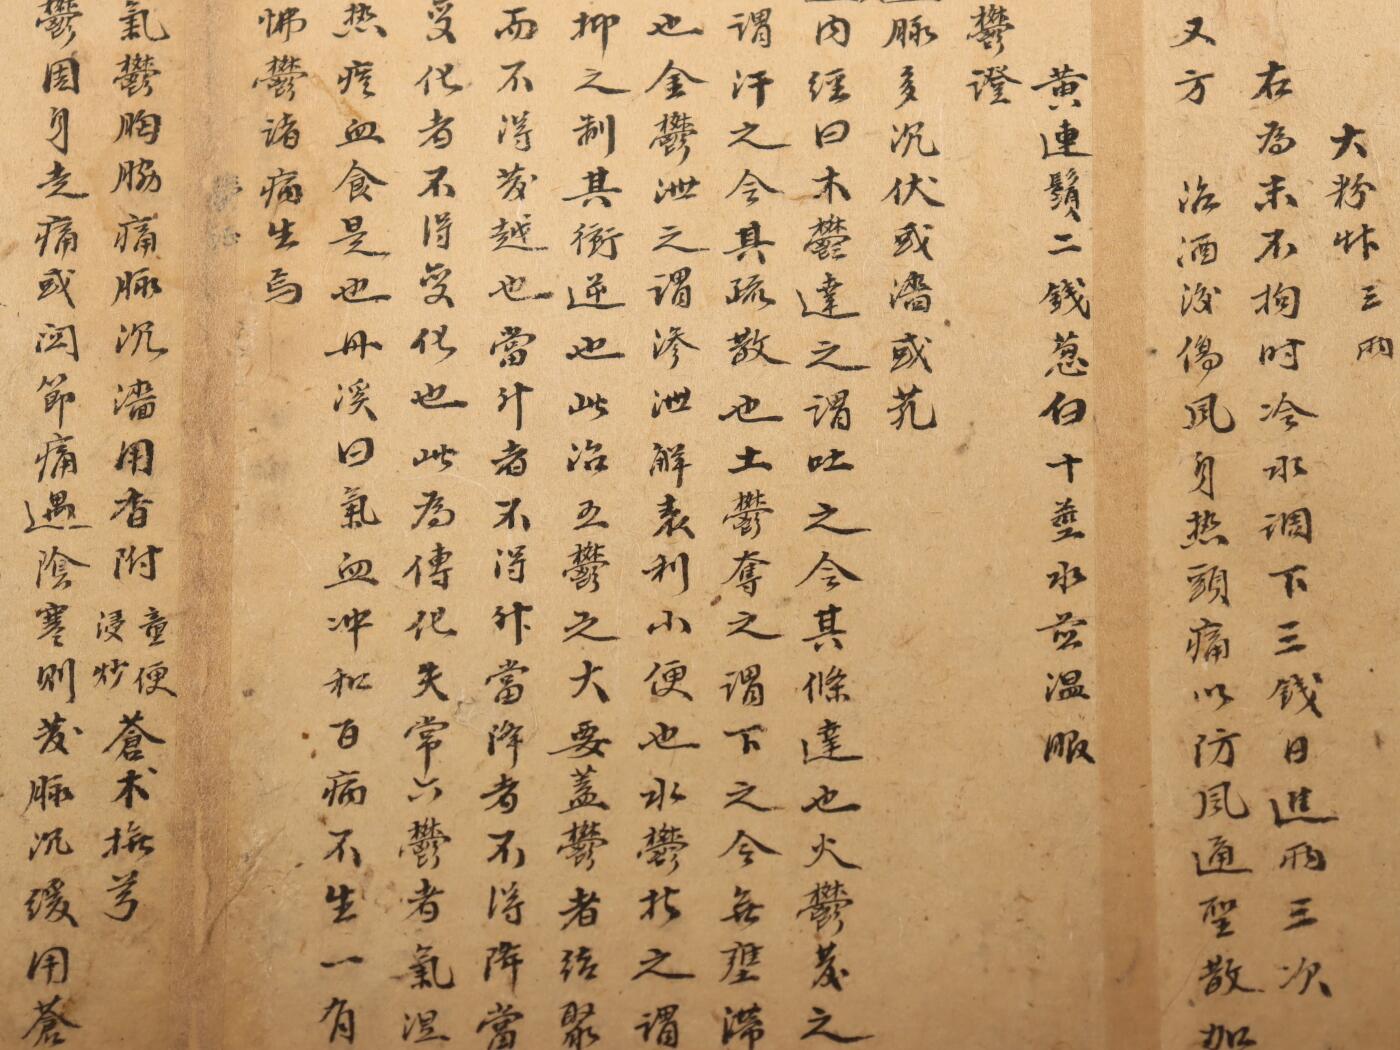 大粉草三兩
右為末不拘时冷水调下三錢日進兩三次
又方 治酒後傷風身热頭痛以防風通聖散加
黄連鬚二錢葱白十莖水並温服
鬱證
脉多沉伏或濇或芤
内經曰木鬱達之謂吐之令其條達也火鬱發之
謂汗之令其疏散也土鬱奪之謂下之令無壅滞
也金鬱泄之謂滲泄解表利小便也水鬱折之謂
抑之制其衝逆也此治五鬱之大要蓋鬱者结聚
而不得發越也當升者不得升當降者不得降當
变化者不得变化也此為傳化失常六鬱者氣湿
热痰血食是也丹溪曰氣血冲和百病不生一有
怫鬱诸病生焉
氣鬱胸脇痛脉沉濇用香附童便浸炒蒼术撫芎
鬱周身走痛或関節痛遇陰寒則發脉沉缓用蒼